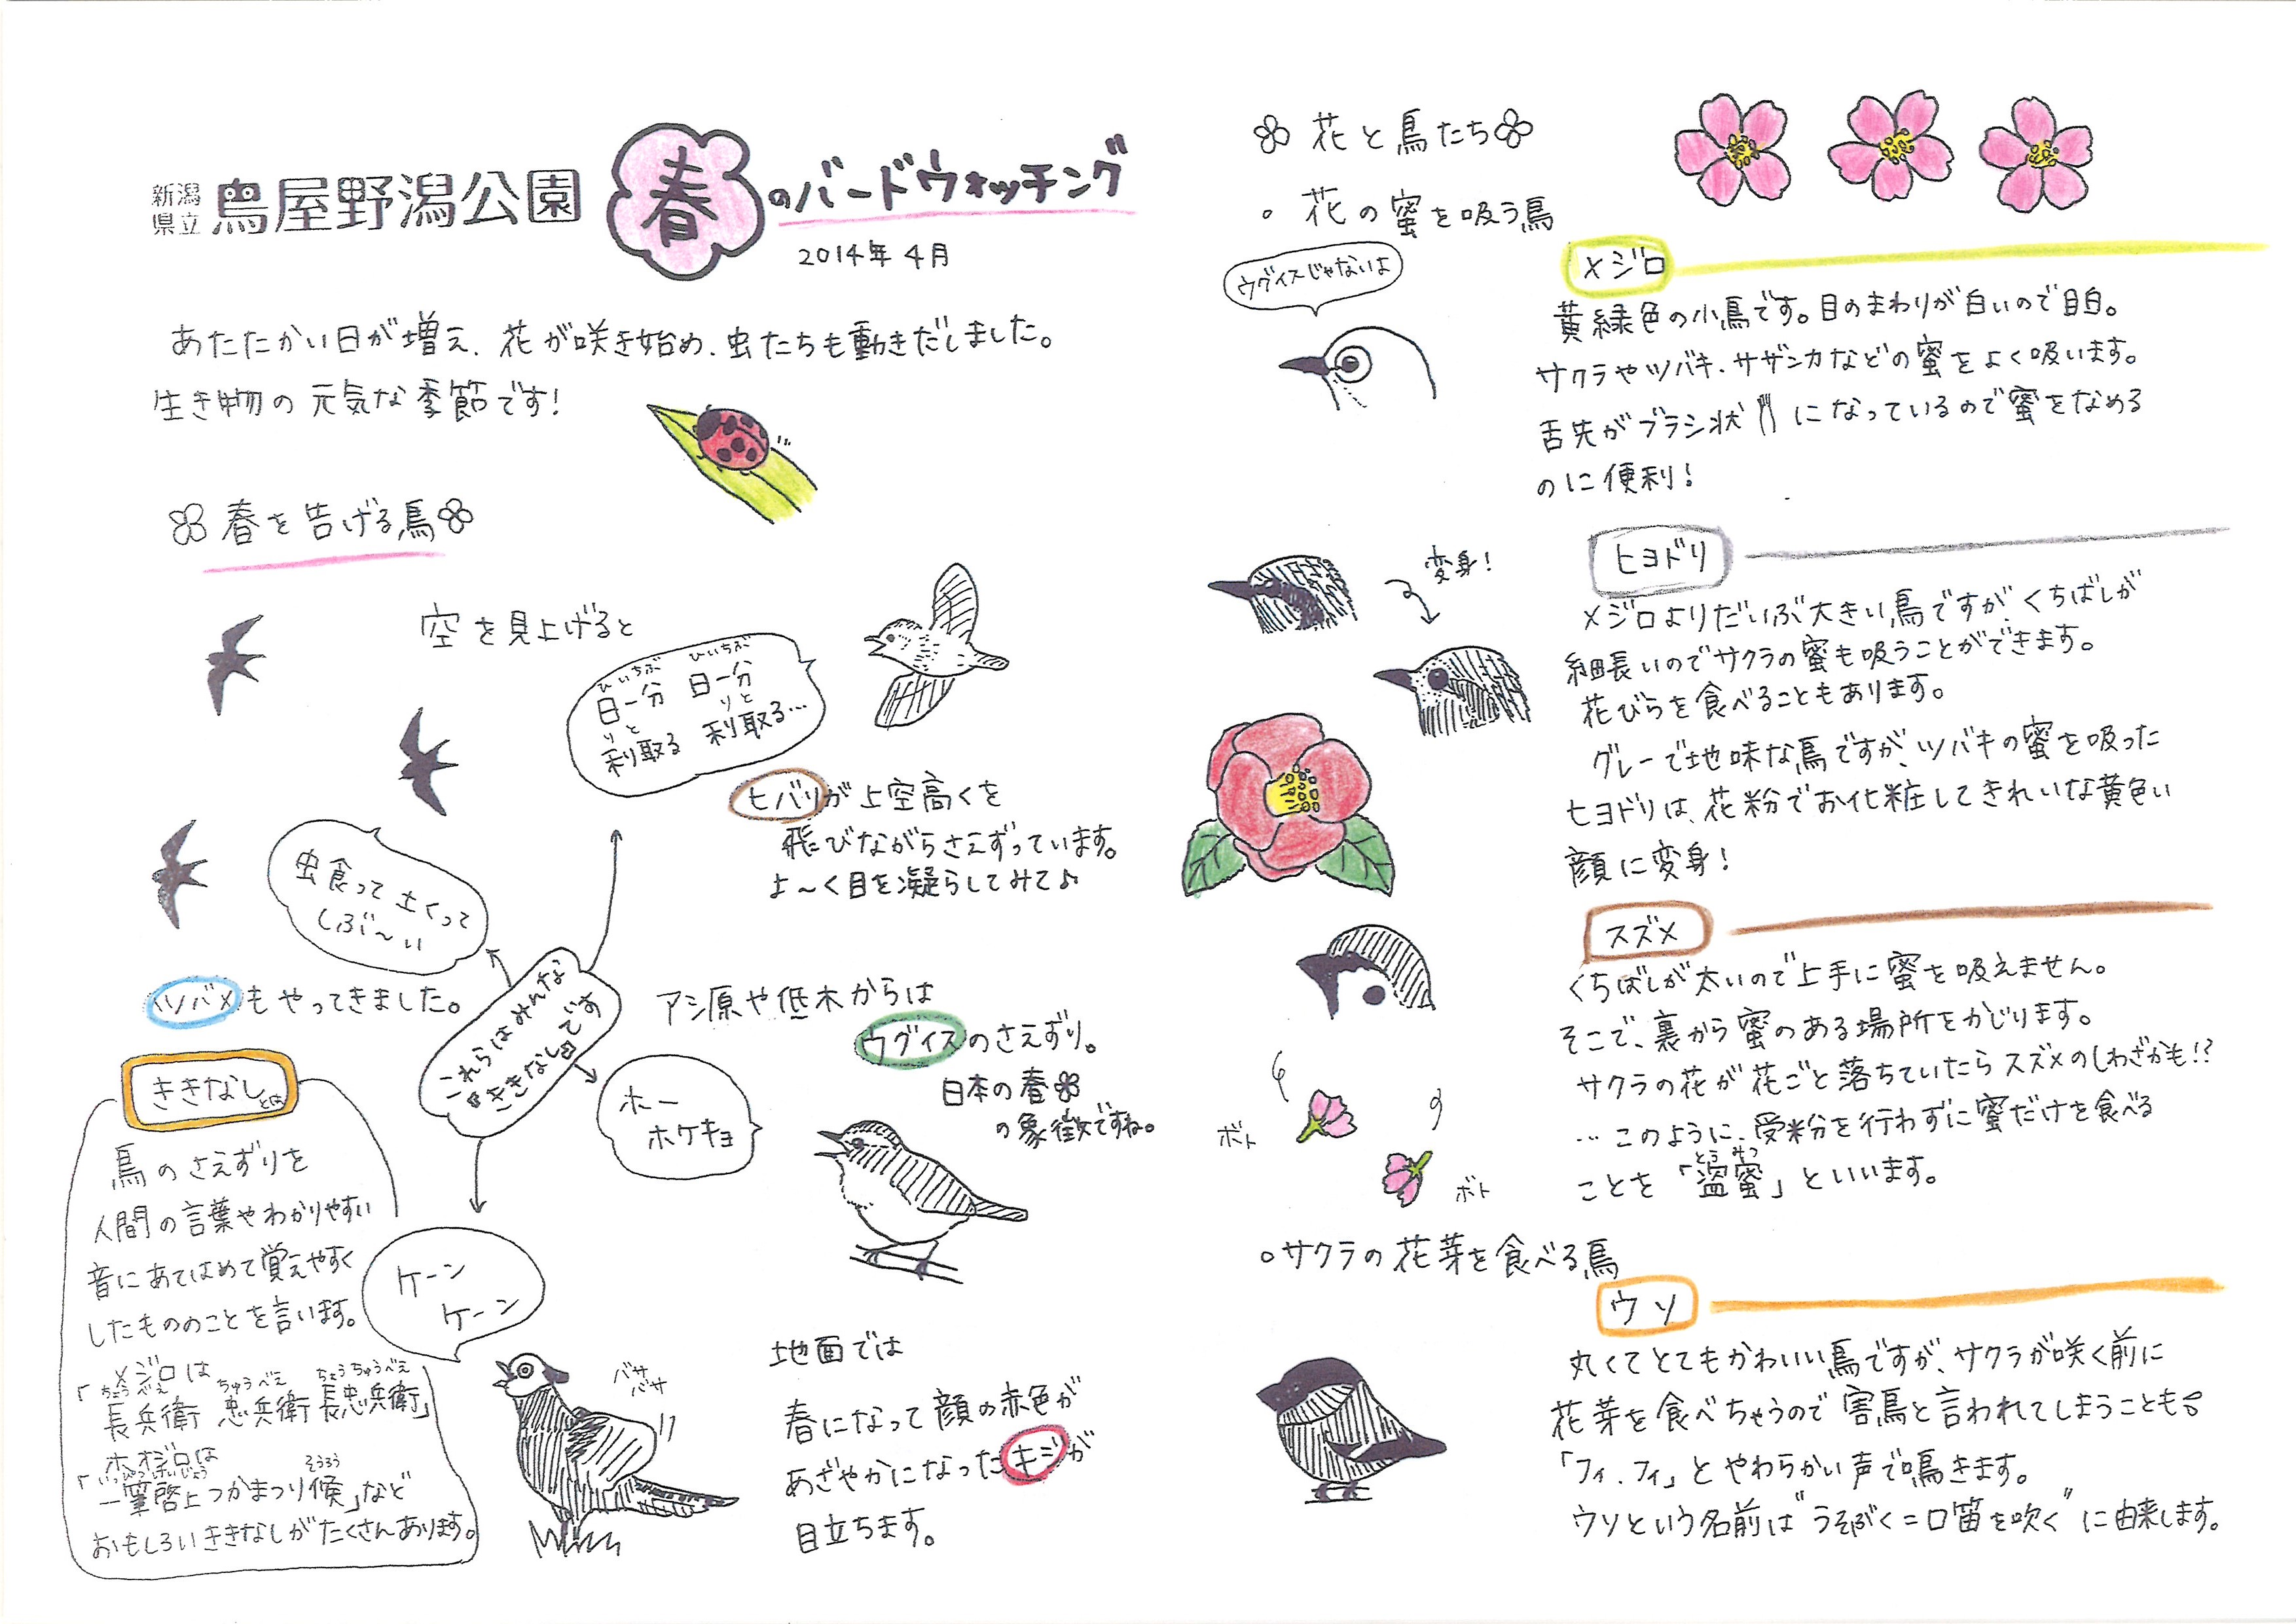 新潟県立 鳥屋野潟公園 春のバードウォッチング
2014年 4月
あたたかい日が増え、花が咲き始め、虫たちも動きだしました。
生き物の元気な季節です!
春を告げる鳥
空を見上げると
日一分 日一分
ひいちぶ ひいちぶ
利取る 利取る…
りと りと
ヒバリが上空高くを
飛びながらさえずっています。
よ〜く目を凝らしてみて♪
虫食って土くって
しぶ〜い
ツバメもやってきました。
これらはみんな
"ききなし"です
アシ原や低木からは
ウグイスのさえずり。
日本の春
の象徴ですね。
ホー
ホケキョ
ききなしとは
鳥のさえずりを
人間の言葉やわかりやすい
音にあてはめて覚えやすく
したもののことを言います。
メジロは
ちょうべえ ちゅうべえ ちょうちゅうべえ
「長兵衛 忠兵衛 長忠兵衛」
ホオジロは
いっぴつけいじょう そうろう
「一筆啓上つかまつり候」など
おもしろいききなしがたくさんあります。
ケーン
ケーン
バサ
バサ
地面では
春になって顔の赤色が
あざやかになったキジが
目立ちます。
花と鳥たち
。花の蜜を吸う鳥
ウグイスじゃないよ
メジロ
黄緑色の小鳥です。目のまわりが白いので目白。
サクラやツバキ、サザンカなどの蜜をよく吸います。
舌先がブラシ状になっているので蜜をなめる
のに便利!
変身!
ヒヨドリ
メジロよりだいぶ大きい鳥ですが、くちばしが
細長いのでサクラの蜜も吸うことができます。
花びらを食べることもあります。
グレーで地味な鳥ですが、ツバキの蜜を吸った
ヒヨドリは、花粉でお化粧してきれいな黄色い
顔に変身!
スズメ
くちばしが太いので上手に蜜を吸えません。
そこで、裏から蜜のある場所をかじります。
サクラの花が花ごと落ちていたらスズメのしわざかも!?
…このように、受粉を行わずに蜜だけを食べる
とうみつ
ことを「盗蜜」といいます。
ボト
ボト
。サクラの花芽を食べる鳥
ウソ
丸くてとてもかわいい鳥ですが、サクラが咲く前に
花芽を食べちゃうので害鳥と言われてしまうことも
「フィ、フィ」とやわらかい声で鳴きます。
ウソという名前は"うそぶく=口笛を吹く"に由来します。